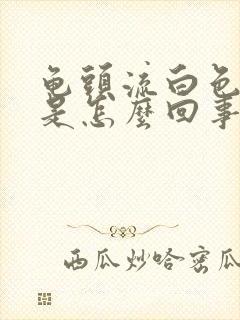 龟頭流白色
是怎麼回事
西瓜炒哈密瓜